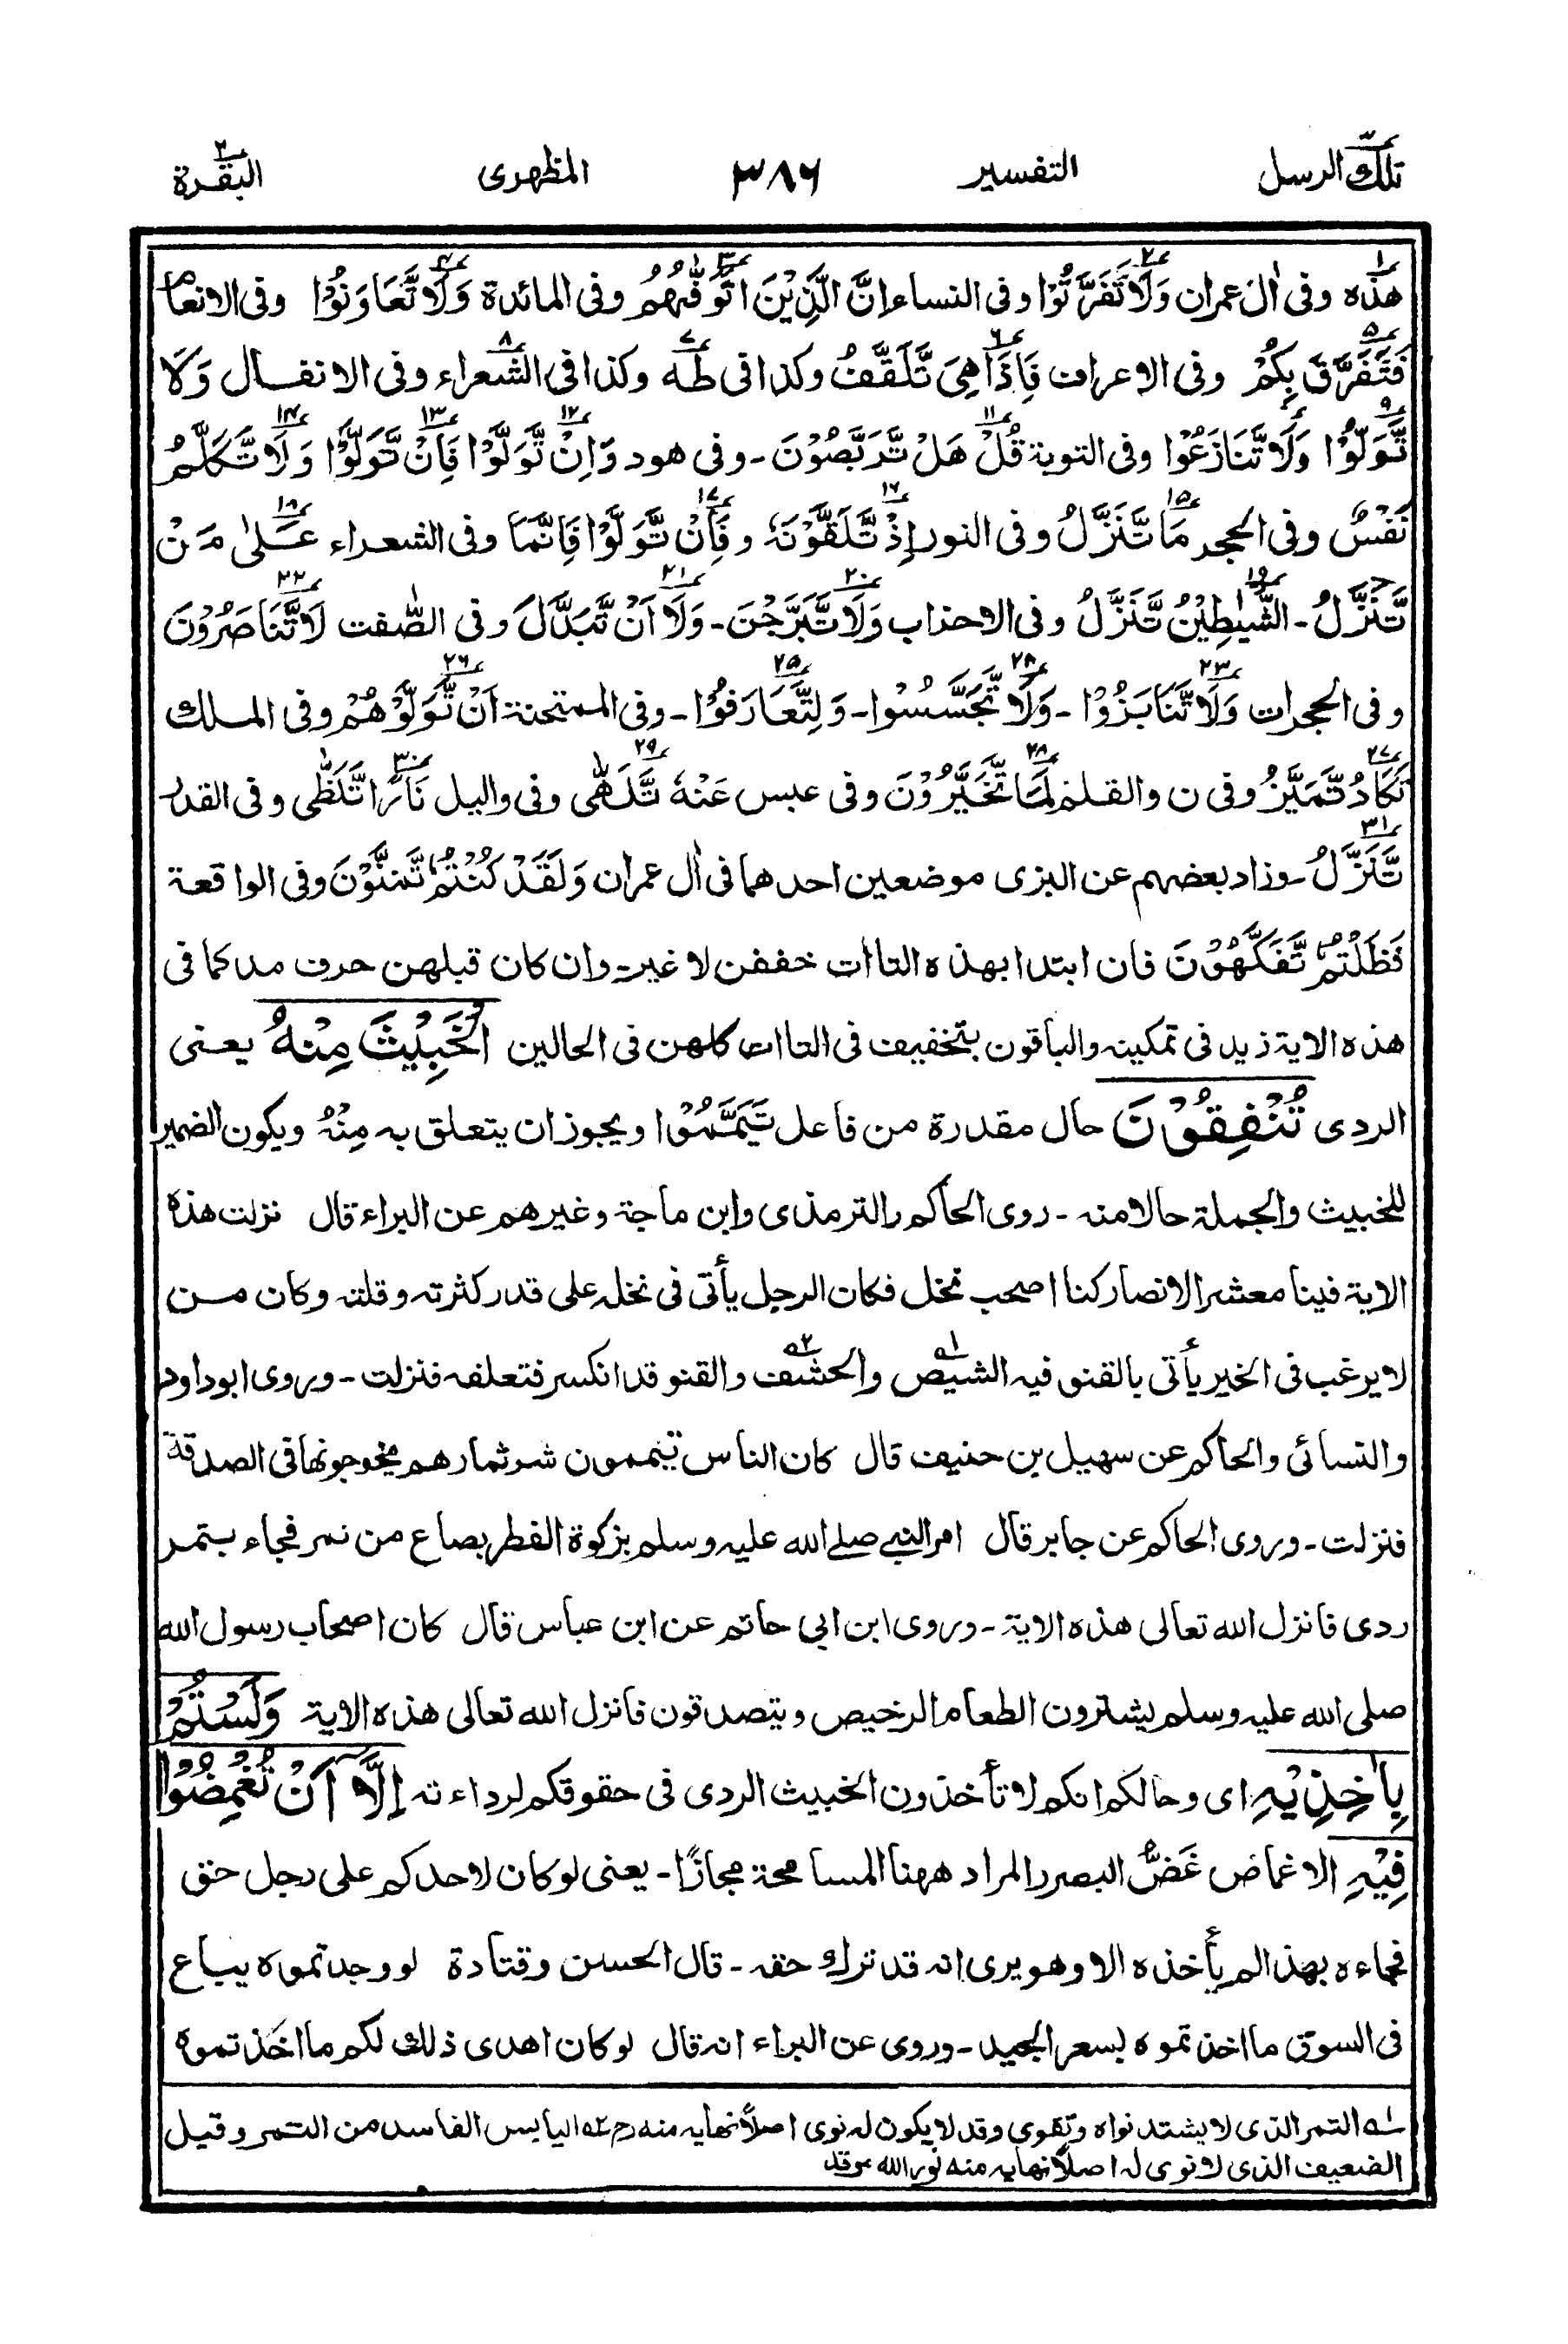 تلك الرسل ٣ التفسير ٣٨٦ المظهرى البقرة ٢
هذه وفى اٰل عمران وَلَا تَّفَرَّقُوْا وفى النساء اِنَّ الَّذِيْنَ اتَّوَفّٰىهُمُ وفى المائدة وَلَا تَّعَاوَنُوْا وفى الانعام
فَتَّفَرَّقَ بِكُمْ وفى الاعراف فَاِذَا هِىَ تَّلَقَّفُ وكذا فى طٰهٰ وكذا فى الشعراء وفى الانفال وَلَا
تَّوَلَّوْا وَلَا تَّنَازَعُوْا وفى التوبة قُلْ هَلْ تَّرَبَّصُوْنَ - وفى هود وَاِنْ تَّوَلَّوْا فَاِنْ تَّوَلَّوْا وَلَا تَّكَلَّمُ
نَفْسٌ وفى الحجر مَا تَّنَزَّلُ وفى النور اِذْ تَّلَقَّوْنَهٗ وفَاِنْ تَّوَلَّوْا فَاِنَّمَا وفى الشعراء عَلٰى مَنْ
تَّنَزَّلُ - الشَّيٰطِيْنُ تَّنَزَّلُ وفى الاحزاب وَلَا تَّبَرَّجْنَ - وَلَا اَنْ تَّبَدَّلَ وفى الصّٰفت لَا تَّنَاصَرُوْنَ
وفى الحجرات وَلَا تَّنَابَزُوْا - وَلَا تَّجَسَّسُوْا - وَلِتَّعَارَفُوْا - وفى الممتحنة اَنْ تَّوَلَّوْهُمْ وفى الملك
تَكَادُ تَّمَيَّزُ وفى ن والقلم لَمَا تَّخَيَّرُوْنَ وفى عبس عَنْهُ تَّلَهّٰى وفى واليل نَارًا تَّلَظّٰى وفى القدر
تَّنَزَّلُ - وزاد بعضهم عن البزى موضعين احدهما فى اٰل عمران وَلَقَدْ كُنْتُمْ تَّمَنَّوْنَ وفى الواقعة
فَظَلْتُمْ تَّفَكَّهُوْنَ فان ابتدا بهذه التاات خففن لا غير - وان كان قبلهن حرف مد كما فى
هذه الاية زيد فى تمكينه والباقون بتخفيف فى التاات كلهن فى الحالين الْخَبِيْثَ مِنْهُ يعنى
الردى تُنْفِقُوْنَ حال مقدرة من فاعل تَيَمَّمُوْا ويجوز ان يتعلق به مِنْهُ ويكون الضمير
للخبيث والجملة حالا منه - روى الحاكم والترمذى وابن ماجة وغيرهم عن البراء قال نزلت هذه
الاية فينا معشر الانصار كنا اصحب نخل فكان الرجل يأتى فى نخله على قدر كثرته وقلته وكان من
لا يرغب فى الخير يأتى بالقنو فيه الشيص ١ه والحشف ٢ه والقنو قد انكسر فتعلفه فنزلت - وروى ابوداود
والنسائى والحاكم عن سهيل بن حنيف قال كان الناس تيممون شر ثمارهم يخرجونها فى الصدقة
فنزلت - وروى الحاكم عن جابر قال امر النبى صلى الله عليه وسلم بزكوة الفطر بصاع من تمر فجاء بتمر
ردى فانزل الله تعالى هذه الاية - وروى ابن ابى حاتم عن ابن عباس قال كان اصحاب رسول الله
صلى الله عليه وسلم يشترون الطعام الرخيص ويتصدقون فانزل الله تعالى هذه الاية وَلَسْتُمْ
بِاٰخِذِيْهِ اى وحالكم انكم لا تأخذون الخبيث الردى فى حقوقكم لرداءته اِلَّآ اَنْ تُغْمِضُوْا
فِيْهِ الاغماض غَضُّ البصر والمراد ههنا المسامحة مجازًا - يعنى لو كان لاحدكم على رجل حق
فجاءه بهذا لم يأخذه الا وهو يرى انه قد ترك حقه - قال الحسن وقتادة لو وجدتموه يباع
فى السوق ما اخذتموه بسعر الجيد - وروى عن البراء انه قال لو كان اهدى ذلك لكم ما اخذتموه
١ه التمر الذى لا يشتد نواه وتقوى وقد لا يكون له نوى اصلًا نهايه منه رح ٢ه اليابس الفاسد من التمر وقيل
الضعيف الذى لا نوى له اصلًا نهايه منه نور الله مرقده